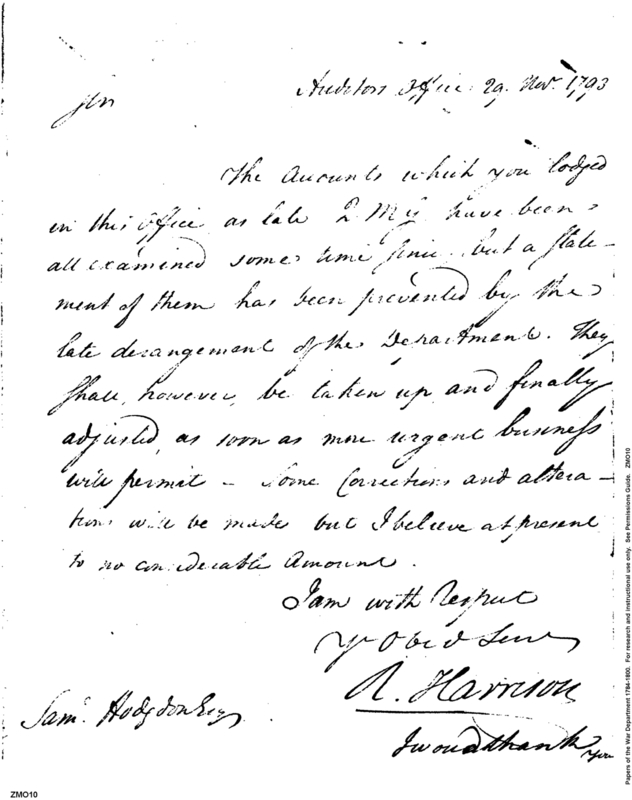 Auditors Office 29. Novr. 1793
Sir
The Accounts which you lodged
in this Office as late Q. M. G. have been
all examined some time since, but a state-
ment of them has been prevented by the
late derangement of the Department. They
shall, however, be taken up and finally
adjusted, as soon as more urgent business
will permit - Some Corrections and altera-
tions will be made but I believe at present
to no considerable Amount.
I am with Respect
Yr Obed Serv
R. Harrison
Saml. Hodgdon Esq
I woud thank you
ZMO10
Papers of the War Department 1784-1800. For research and instructional use only. See Permissions Guide. ZMO10